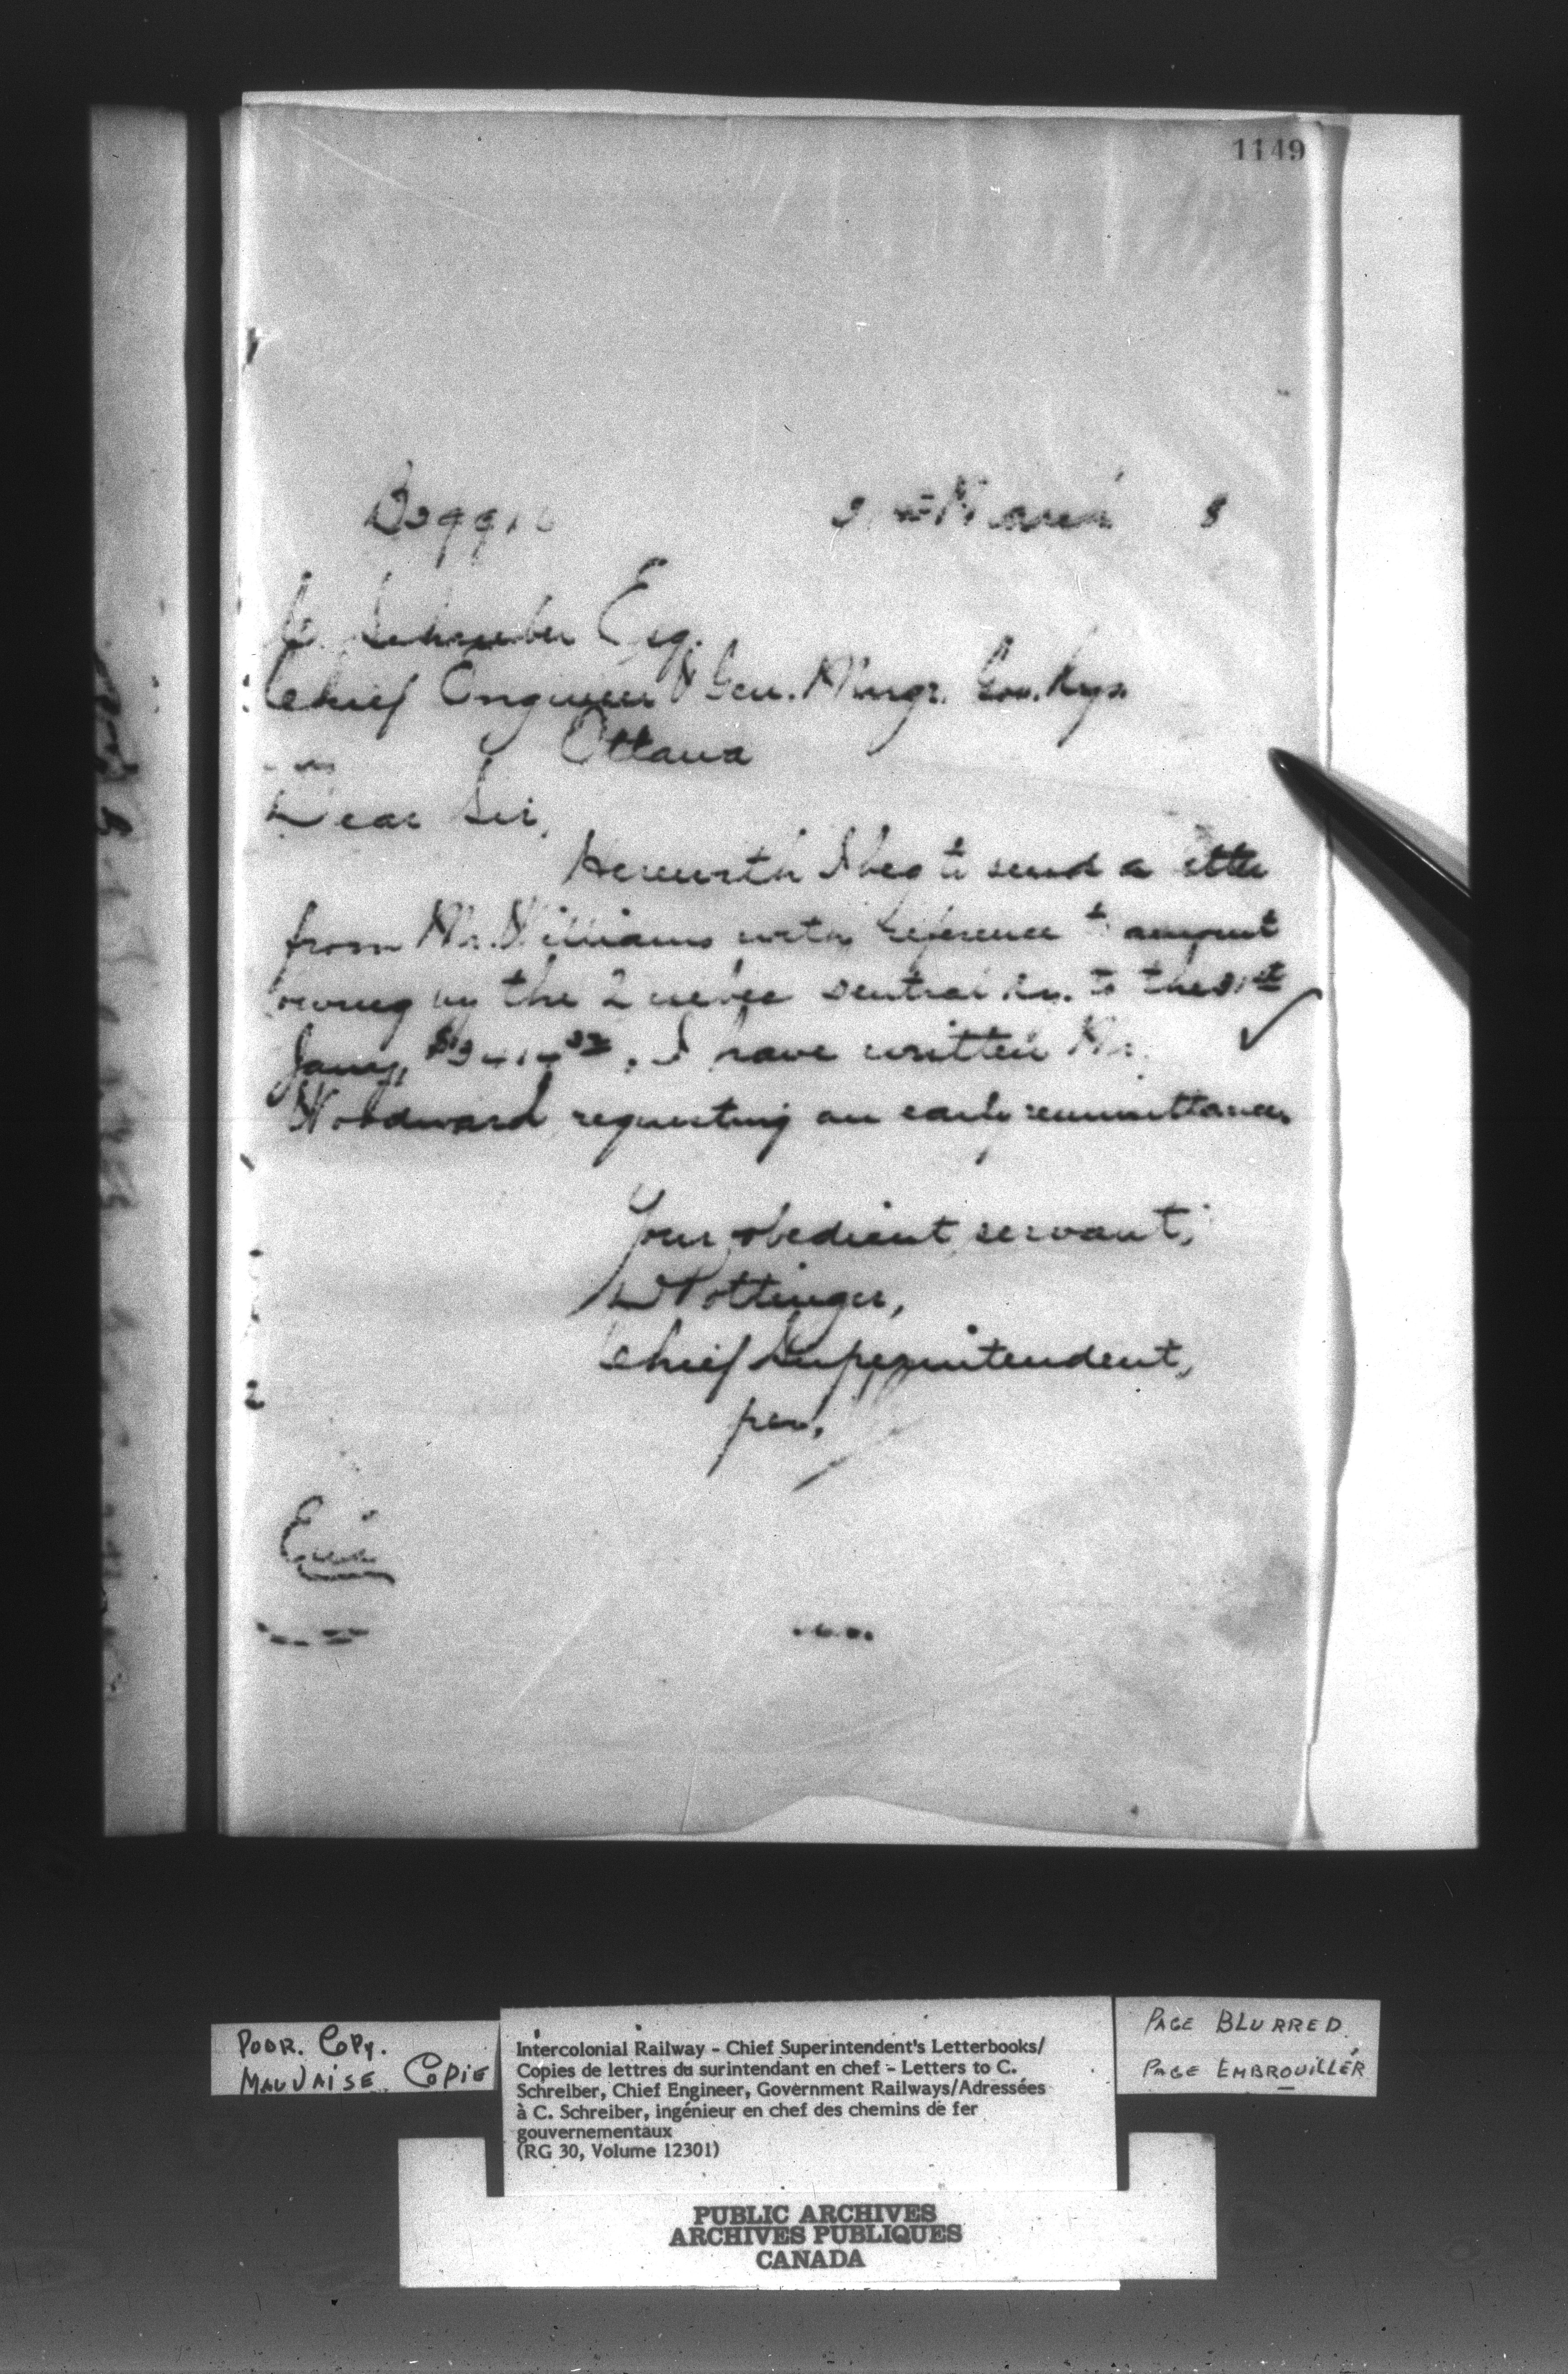 1149
March 8
C. Schreiber Esq.
Chief Engineer & Gen. Mngr. Gov. Rys.
Ottawa
Dear Sir,
Herewith I beg to send a letter
from Mr. Williams with reference to amount
owing by the Quebec Central Ry. to the 31st
Jany, I have written Mr.
Woodward requesting an early remittance.
Your obedient servant,
D Pottinger,
Chief Superintendent,
per,
Encl
POOR COPY.
MAUVAISE COPIE
Intercolonial Railway - Chief Superintendent's Letterbooks/
Copies de lettres du surintendant en chef - Letters to C.
Schreiber, Chief Engineer, Government Railways/Adressées
à C. Schreiber, ingénieur en chef des chemins de fer
gouvernementaux
(RG 30, Volume 12301)
PAGE BLURRED
PAGE EMBROUILLÉR
PUBLIC ARCHIVES
ARCHIVES PUBLIQUES
CANADA